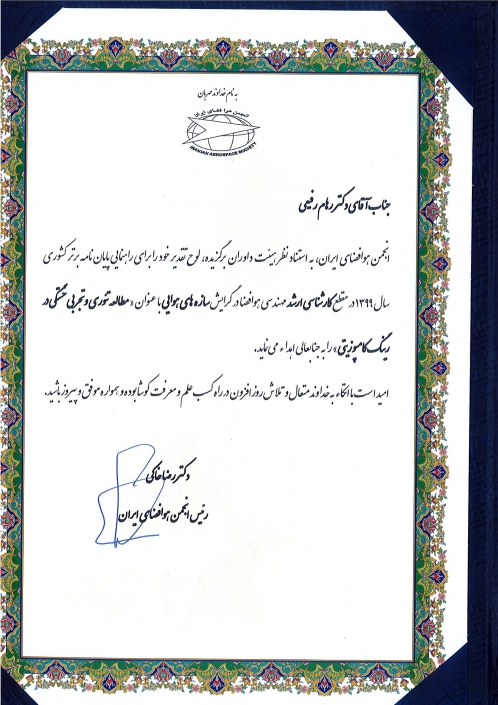 به نام خداوند مهربان
انجمن هوا فضای ایران
IRANIAN AEROSPACE SOCIETY
جناب آقای دکتر رهام رفیعی
انجمن هوافضای ایران، به استناد نظر هیئت داوران برگزیده، لوح تقدیر خود را برای راهنمایی پایان نامه برتر کشوری
سال ۱۳۹۹ در مقطع کارشناسی ارشد مهندسی هوافضا در گرایش سازه های هوایی با عنوان « مطالعه تئوری و تجربی خستگی در
رینگ کامپوزیتی » را به جنابعالی اهداء می نماید.
امید است با اتکاء به خداوند متعال و تلاش روز افزون در راه کسب علم و معرفت کوشا بوده و همواره موفق و پیروز باشید.
دکتر رضا خاکی
رئیس انجمن هوافضای ایران